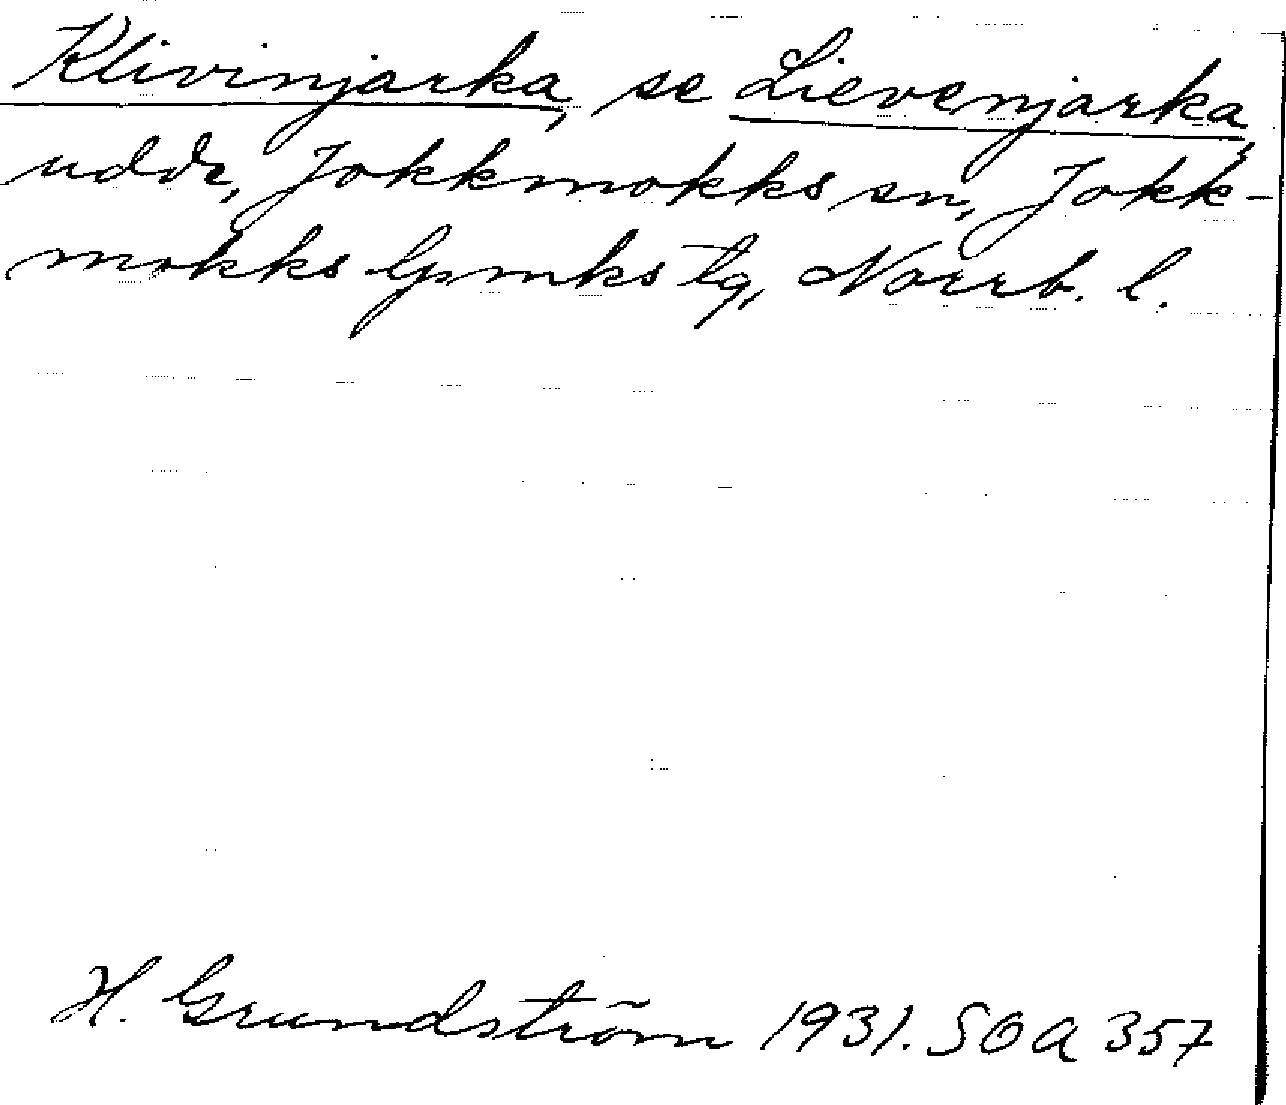 Klivinjarka, se Lievenjarka,
udde, Jokkmokks sn, Jokk-
mokks lpmks tg, Norrb. l.
H. Grundström 1931. SOA 357